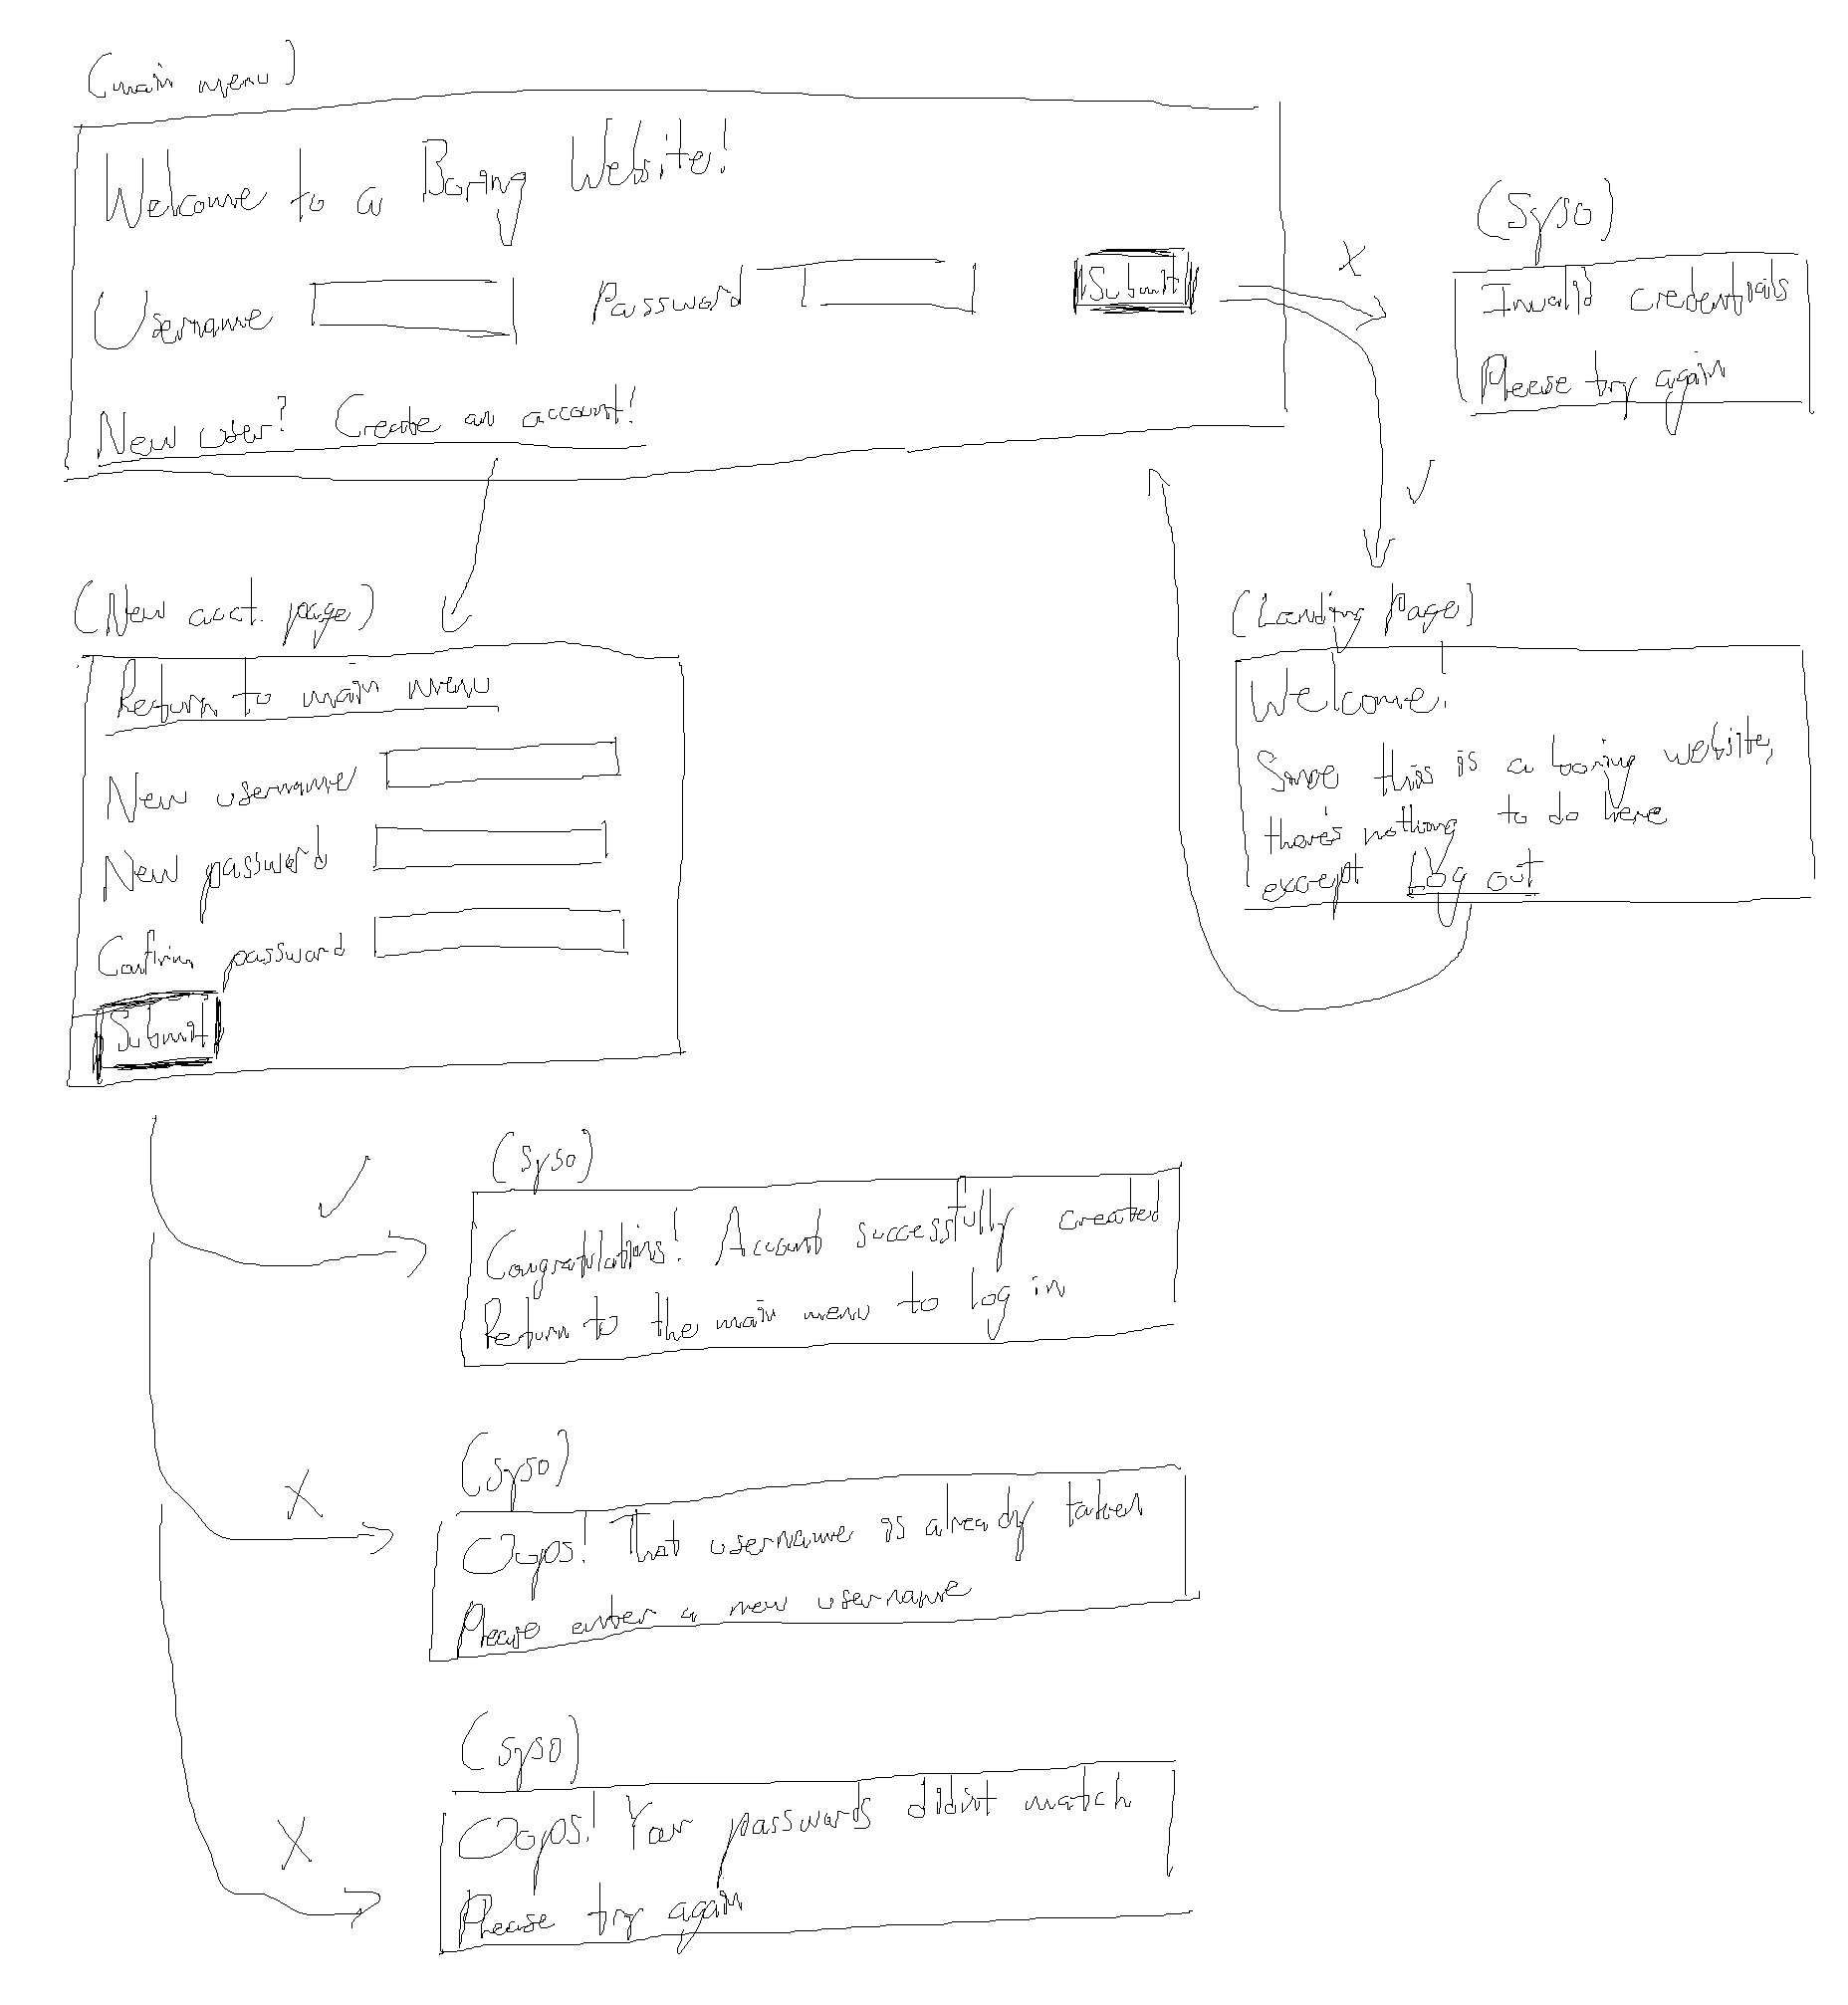 (main menu)
Welcome to a Boring Website!
Username Password Submit
New user? Create an account!
X
(Syso)
Invalid credentials
Please try again
✓
(Landing Page)
Welcome!
Since this is a boring website,
there's nothing to do here
except Log out
(New acct. page)
Return to main menu
New username
New password
Confirm password
Submit
✓
(syso)
Congratulations! Account successfully created
Return to the main menu to log in
X
(syso)
Oops! That username is already taken
Please enter a new username
X
(syso)
Oops! Your passwords didn't match
Please try again